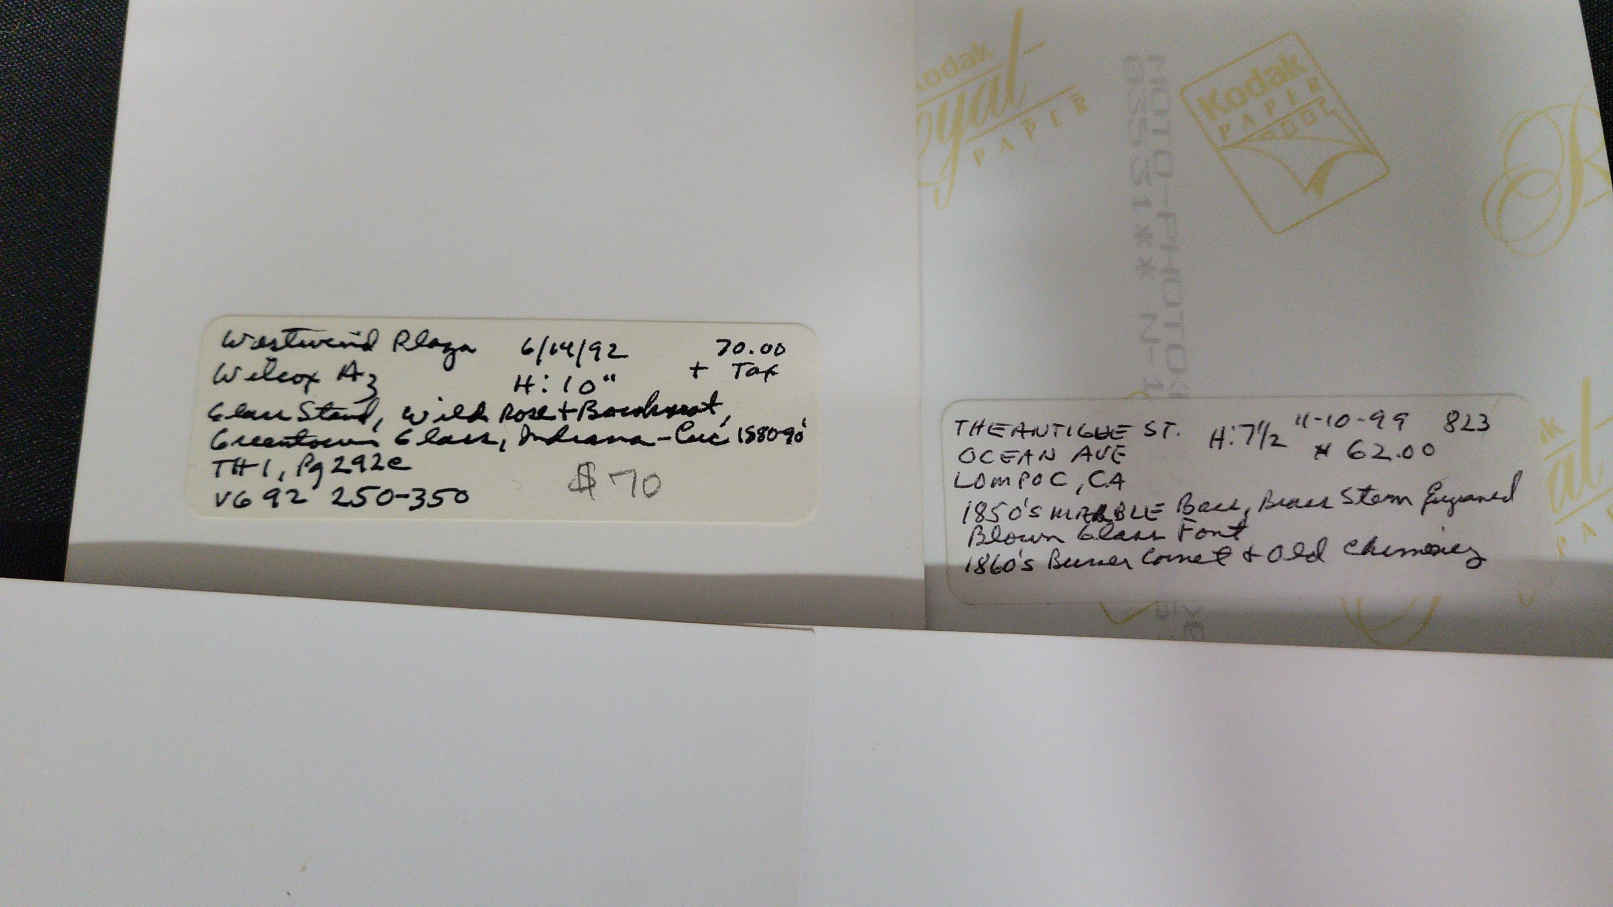 Westwind Plaza 6/14/92 70.00
Wilcox Az H: 10" + Tax
Glass Stand, Wild Rose + Bowknot,
Greentown Glass, Indiana - Circ 1880-90'
TH1, Pg 292e
VG 92 250-350
$70
Kodak
Royal
PAPER
Kodak
PAPER
THE ANTIQUE ST. H: 7 1/2 11-10-99 823
OCEAN AVE # 62.00
LOMPOC, CA
1850's MARBLE Base, Brass Stem Engraved
Blown Glass Font
1860's Burner Comet + Old Chimney